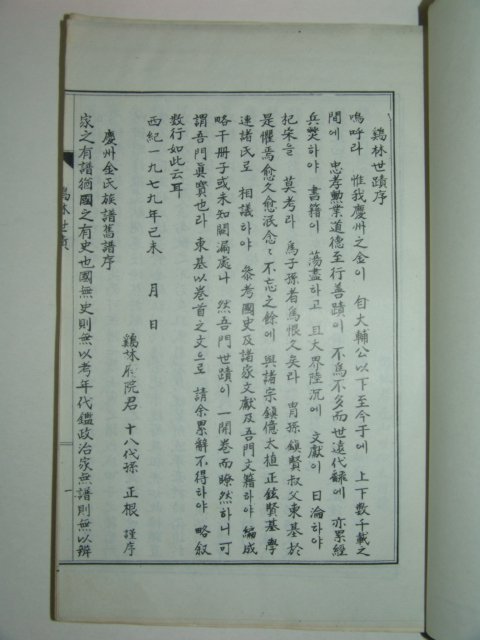 鷄林世蹟序
嗚呼라 惟我慶州之金이 自大輔公以下至今于에 上下數千載之
間에 忠孝勲業道德至行善蹟이 不爲不多而世遠代錄에 亦累經
兵燹하야 書籍이 蕩盡하고 且大界陸沉에 文獻이 日淪하야
杞宋을 莫考라 爲子孫者爲恨久矣라 胄孫鎭賢叔父東基於
是懼焉愈久愈泯念之不忘之餘에 與諸宗鎭億太植正鉉賢基學
連諸氏로 相議하야 叅考國史及諸家文獻及吾門文籍하야 編成
略干册子或未知闕漏處나 然吾門世蹟이 一開卷而瞭然하니 可
謂吾門眞寶也라 東基以卷首之文으로 請余累辭不得하야 略叙
数行如此云耳
西紀一九七九年己未 月 日
鷄林府院君 十八代孫 正根 謹序
慶州金氏族譜舊譜序
家之有譜猶國之有史也國無史則無以考年代鑑政治家無譜則無以辨
鷄林世蹟
一